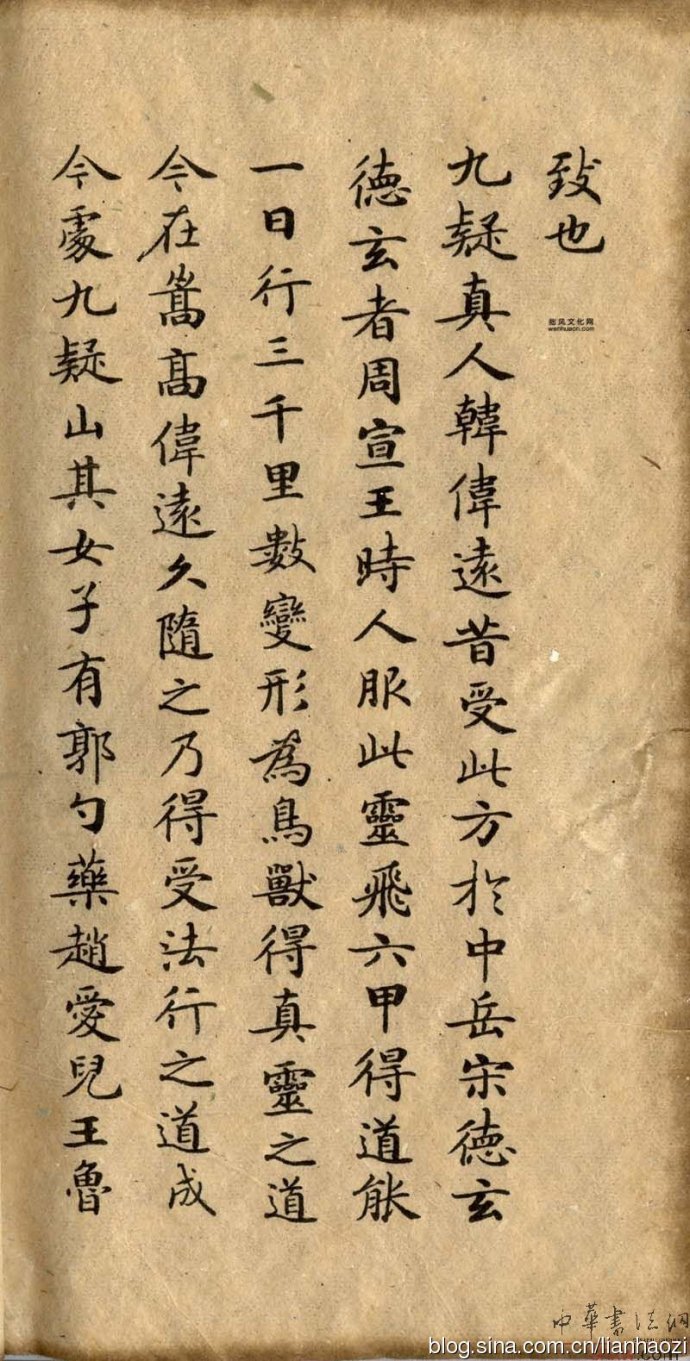 致也
九疑真人韓偉遠昔受此方於中岳宋德玄
德玄者周宣王時人服此靈飛六甲得道能
一日行三千里數變形為鳥獸得真靈之道
今在嵩高偉遠久隨之乃得受法行之道成
今處九疑山其女子有郭勺藥趙愛兒王魯
拙风文化网
wenhuacn.com
中華書法網
.com
blog.sina.com.cn/lianhaozi